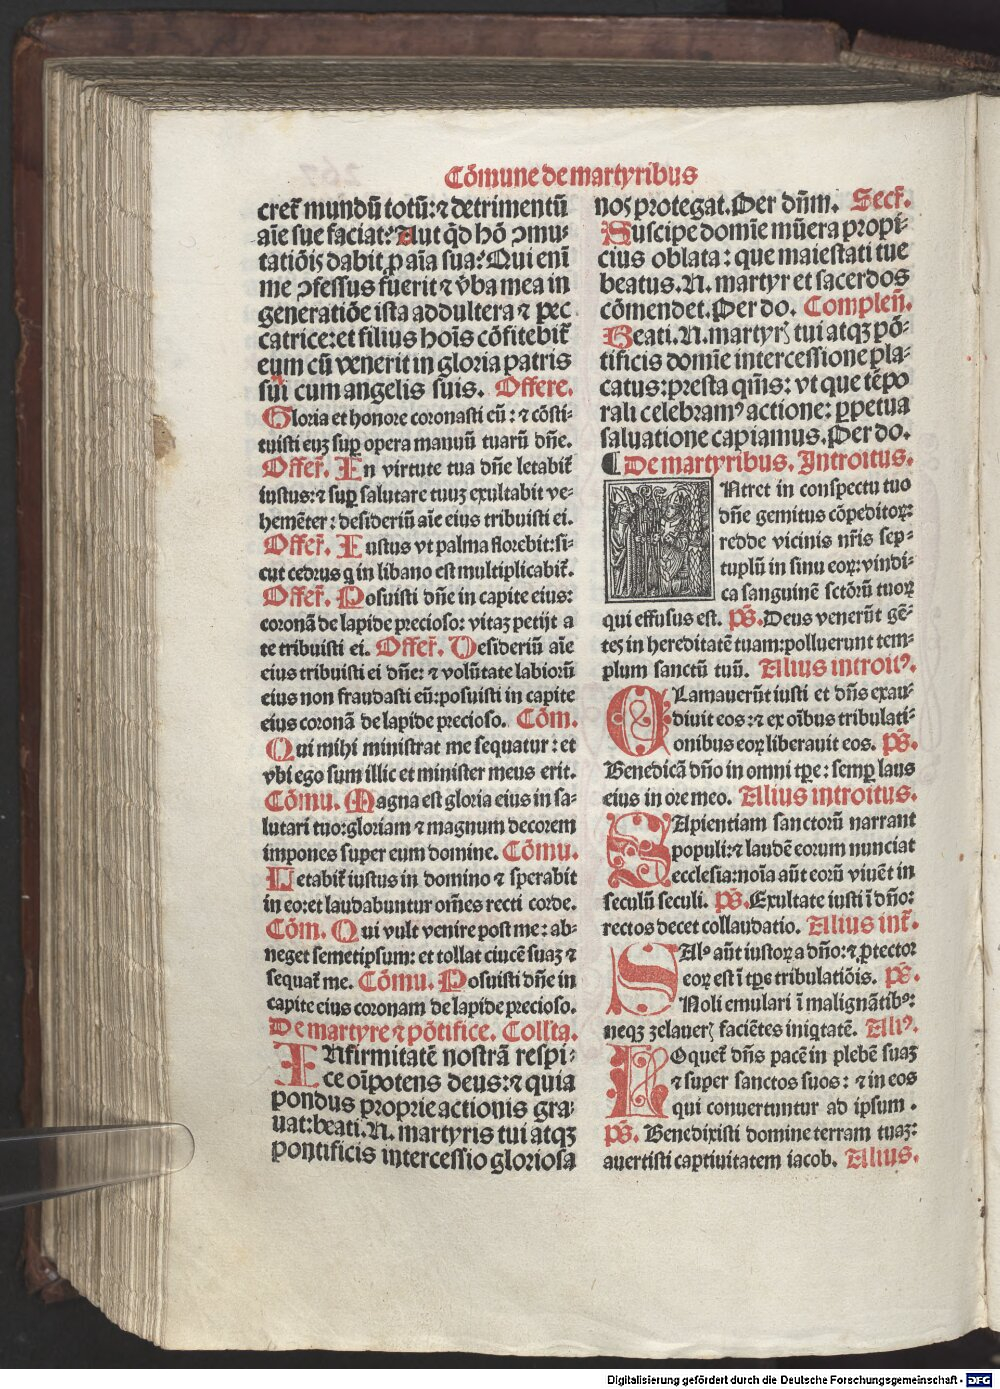 Cõmune de martyribus
cret᷑ mundũ totũ: ⁊ detrimentũ
aĩe sue faciat? Aut q̃d hõ ↄmu-
tatiõis dabit ꝓ aĩa sua? Qui enĩ
me ↄfessus fuerit ⁊ v̾ba mea in
generatiõe ista addultera ⁊ pec
catrice: et filius hoĩs cõfitebit᷑
eum cũ venerit in gloria patris
sui cum angelis suis. Offere.
Gloria et honore coronasti eũ: ⁊ cõsti-
tuisti euꝫ suꝑ opera manuũ tuarũ dñe.
Offer̃. In virtute tua dñe letabit᷑
iustus: ⁊ suꝑ salutare tuuꝫ exultabit ve-
hemẽter: desideriũ aĩe eius tribuisti ei.
Offer̃. Iustus vt palma florebit: si-
cut cedrus q̃ in libano est multiplicabit᷑.
Offer̃. Posuisti dñe in capite eius:
coronã de lapide precioso: vitaꝫ petijt a
te tribuisti ei. Offer̃. Desideriũ aĩe
eius tribuisti ei dñe: ⁊ volũtate labiorũ
eius non fraudasti eũ: posuisti in capite
eius coronã de lapide precioso. Cõm.
Qui mihi ministrat me sequatur: et
vbi ego sum illic et minister meus erit.
Cõmu. Magna est gloria eius in sa-
lutari tuo: gloriam ⁊ magnum decorem
impones super eum domine. Cõmu.
Letabit᷑ iustus in domino ⁊ sperabit
in eo: et laudabuntur om̃es recti corde.
Cõm. Qui vult venire post me: ab-
neget semetipsum: et tollat crucẽ suaꝫ ⁊
sequat᷑ me. Cõmu. Posuisti dñe in
capite eius coronam de lapide precioso.
De martyre ⁊ põtifice. Coll̃ta.
INfirmitatẽ nostrã respi-
ce oĩpotens deus: ⁊ quia
pondus proprie actionis gra-
uat: beati .N. martyris tui atqꝫ
pontificis intercessio gloriosa
nos protegat. Per dñm. Secr̃.
Suscipe domĩe mũera propi-
cius oblata: que maiestati tue
beatus .N. martyr et sacerdos
cõmendet. Per do. Compleñ.
Beati .N. martyrꝭ tui atqꝫ põ-
tificis domĩe intercessione pla-
catus: presta qm̃s: vt que tẽpo
rali celebramꝰ actione: ꝑpetua
saluatione capiamus. Per do.
¶ De martyribus. Introitus.
INtret in conspectu tuo
dñe gemitus cõpeditoꝝ:
redde vicinis nr̃is sep-
tuplũ in sinu eoꝝ: vindi-
ca sanguinẽ sctõrũ tuoꝝ
qui effusus est. p̃s. Deus venerũt gẽ-
tes in hereditatẽ tuam: polluerunt tem-
plum sanctũ tuũ. Alius introitꝰ.
CLamauerũt iusti et dñs exau-
diuit eos: ⁊ ex oĩbus tribulati-
onibus eoꝝ liberauit eos. p̃s.
Benedicã dño in omni tp̃e: semꝑ laus
eius in ore meo. Alius introitus.
SApientiam sanctorũ narrant
populi: ⁊ laudẽ eorum nunciat
ecclesia: noĩa aũt eorũ viuẽt in
seculũ seculi. p̃s. Exultate iusti ĩ dño:
rectos decet collaudatio. Alius int᷑.
SAlꝰ aũt iustoꝝ a dño: ⁊ ꝓtector
eoꝝ est ĩ tp̃e tribulatiõis. p̃s.
Noli emulari ĩ malignãtibꝰ:
neqꝫ zelauerꝭ faciẽtes iniq̃tatẽ. Aliꝰ.
LOquet᷑ dñs pacẽ in plebẽ suaꝫ
⁊ super sanctos suos: ⁊ in eos
qui conuertuntur ad ipsum.
p̃s. Benedixisti domine terram tuaꝫ:
auertisti captiuitatem iacob. Alius.
Digitalisierung gefördert durch die Deutsche Forschungsgemeinschaft - DFG